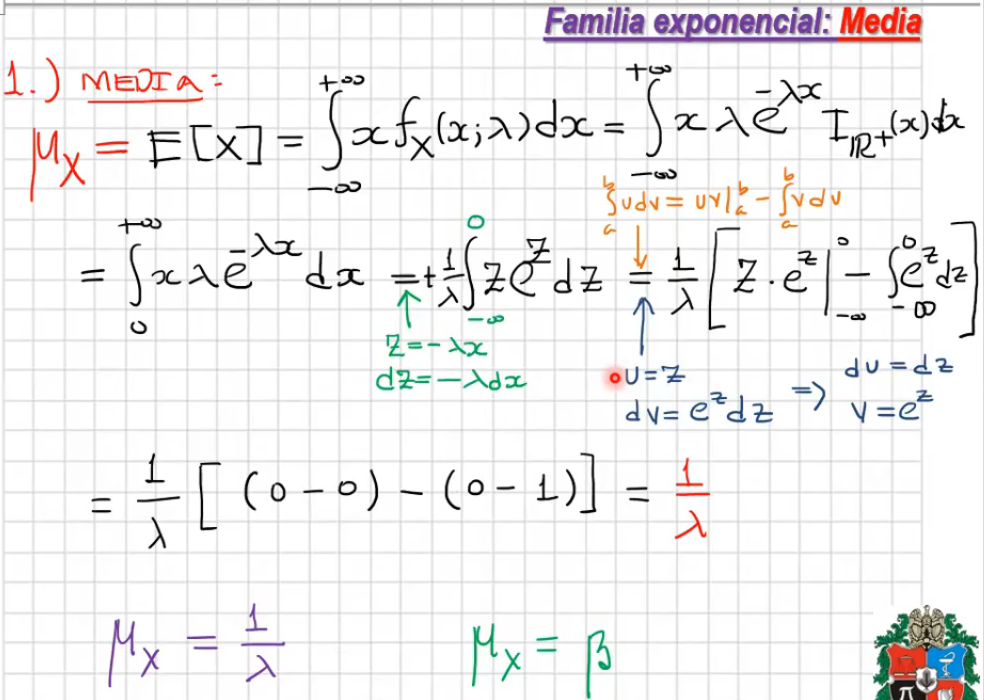 Familia exponencial: Media
1.) MEDIA:
μ_X = E[X] = ∫_{-∞}^{+∞} x f_X(x;λ)dx = ∫_{-∞}^{+∞} x λ e^{-λx} I_{ℝ+}(x)dx
∫_a^b u dv = uv|_a^b - ∫_a^b v du
= ∫_0^{+∞} x λ e^{-λx} dx = +1/λ ∫_{-∞}^0 z e^z dz = 1/λ [z·e^z |_{-∞}^0 - ∫_{-∞}^0 e^z dz]
z = -λx
dz = -λdx
u = z ⇒ du = dz
dv = e^z dz v = e^z
= 1/λ [(0 - 0) - (0 - 1)] = 1/λ
μ_X = 1/λ μ_X = β